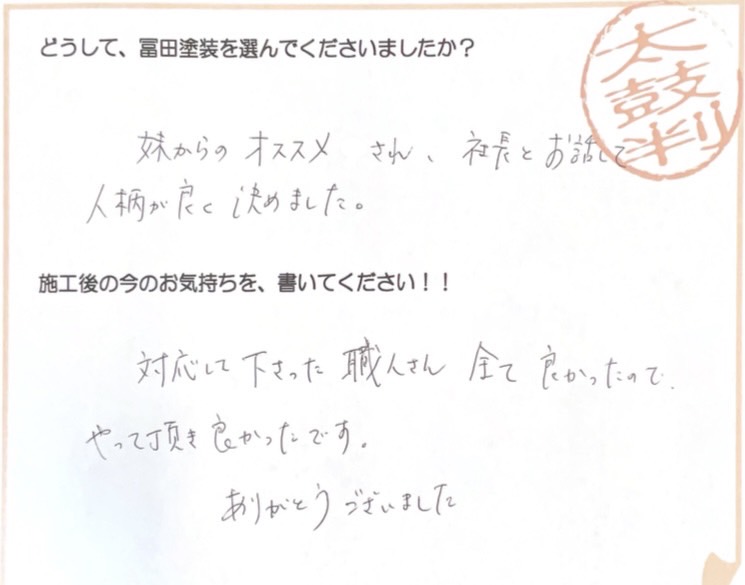 どうして、冨田塗装を選んでくださいましたか？
太鼓判
妹からのオススメ され、社長とお話して
人柄が良く決めました。
施工後の今のお気持ちを、書いてください！！
対応して下さった 職人さん 全て 良かったので、
やって頂き良かったです。
ありがとうございました